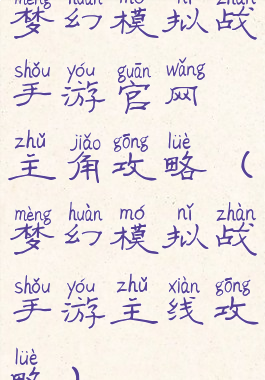 mèng huàn mó nǐ zhàn
梦幻模拟战
shǒu yóu guān wǎng
手游官网
zhǔ jiǎo gōng lüè
主角攻略（
mèng huàn mó nǐ zhàn
梦幻模拟战
shǒu yóu zhǔ xiàn gōng
手游主线攻
lüè
略）